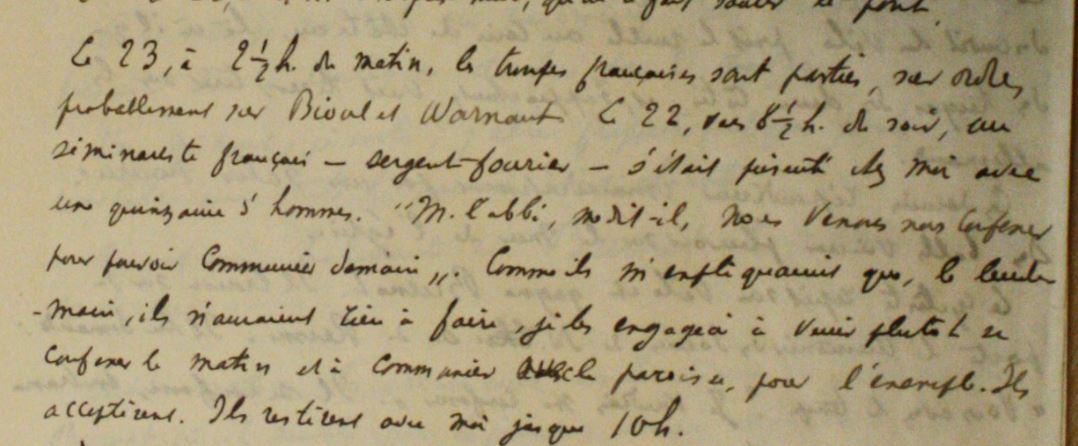 qu'on a fait sauter le pont
Le 23, à 2 1/2 h. du matin, les troupes françaises sont parties, sur ordre,
probablement sur Bioul et Warnant. Le 22, vers 8 1/2 h. du soir, un
séminariste français - sergent-fourier - s'était présenté chez moi avec
une quinzaine d'hommes. "M. l'abbé, me dit-il, nous venons nous confesser
pour pouvoir communier demain". Comme ils m'expliquaient que, le lende
-main, ils n'auraient rien à faire, je les engageai à venir plutôt se
confesser le matin et à communier avec la paroisse, pour l'exemple. Ils
acceptèrent. Ils restèrent avec moi jusque 10h.